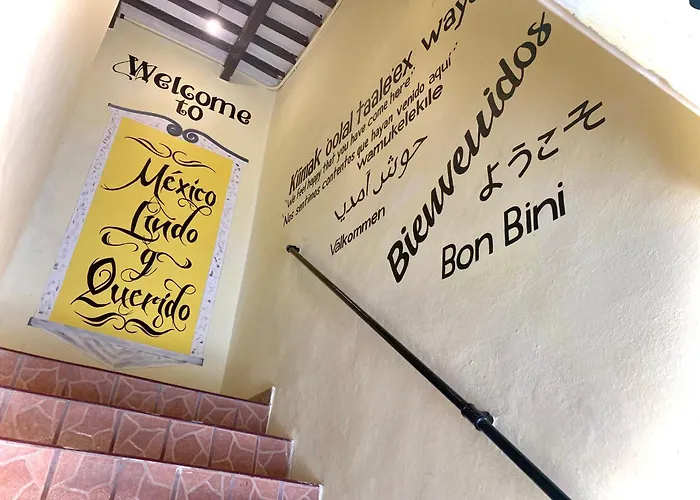 Welcome
to
México
Lindo
y
Querido
Kiimak 'oolal taale'ex way
"We feel happy that you have come here"
"Nos sentimos contentos que hayan venido aquí"
wamukelekile
خوش آمدید
Välkommen
Bienvenidos
ようこそ
Bon Bini